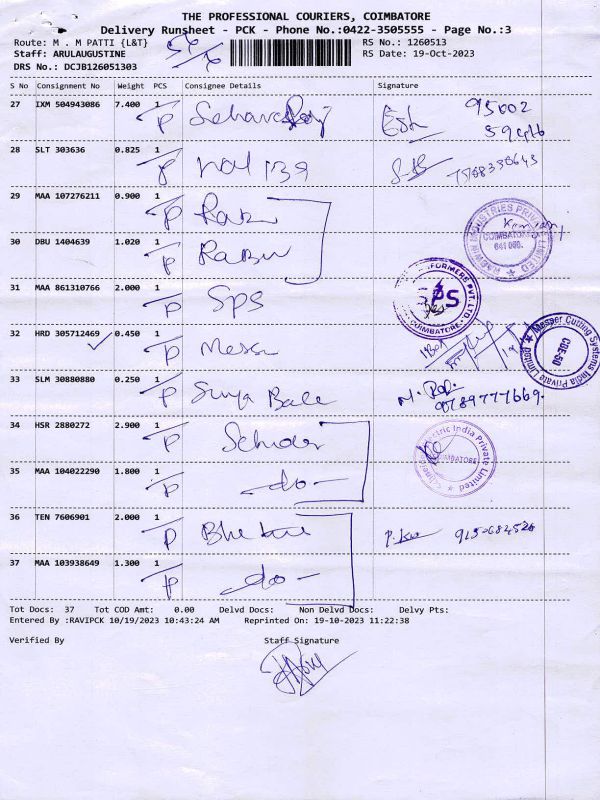 THE PROFESSIONAL COURIERS, COIMBATORE
Delivery Runsheet - PCK - Phone No.:0422-3505555 - Page No.:3
Route: M . M PATTI {L&T} RS No.: 1260513
Staff: ARULAUGUSTINE RS Date: 19-Oct-2023
DRS No.: DCJB126051303
S No Consignment No Weight PCS Consignee Details Signature
27 IXM 504943086 7.400 1 95002
P
28 SLT 303636 0.825 1
P
29 MAA 107276211 0.900 1
P
COIMBATORE
641 000.
30 DBU 1404639 1.020 1 Rabu
P
31 MAA 861310766 2.000 1 Sps
P
PS
COIMBATORE
32 HRD 305712469 0.450 1
P
Messer Cutting Systems India Private Limited
33 SLM 30880880 0.250 1 Surya Bala
P
9789777669.
34 HSR 2880272 2.900 1
P
Electric India Private Limited
COIMBATORE
35 MAA 104022290 1.800 1 - do -
P
36 TEN 7606901 2.000 1
P
37 MAA 103938649 1.300 1 - do -
P
Tot Docs: 37 Tot COD Amt: 0.00 Delvd Docs: Non Delvd Docs: Delvy Pts:
Entered By :RAVIPCK 10/19/2023 10:43:24 AM Reprinted On: 19-10-2023 11:22:38
Verified By Staff Signature